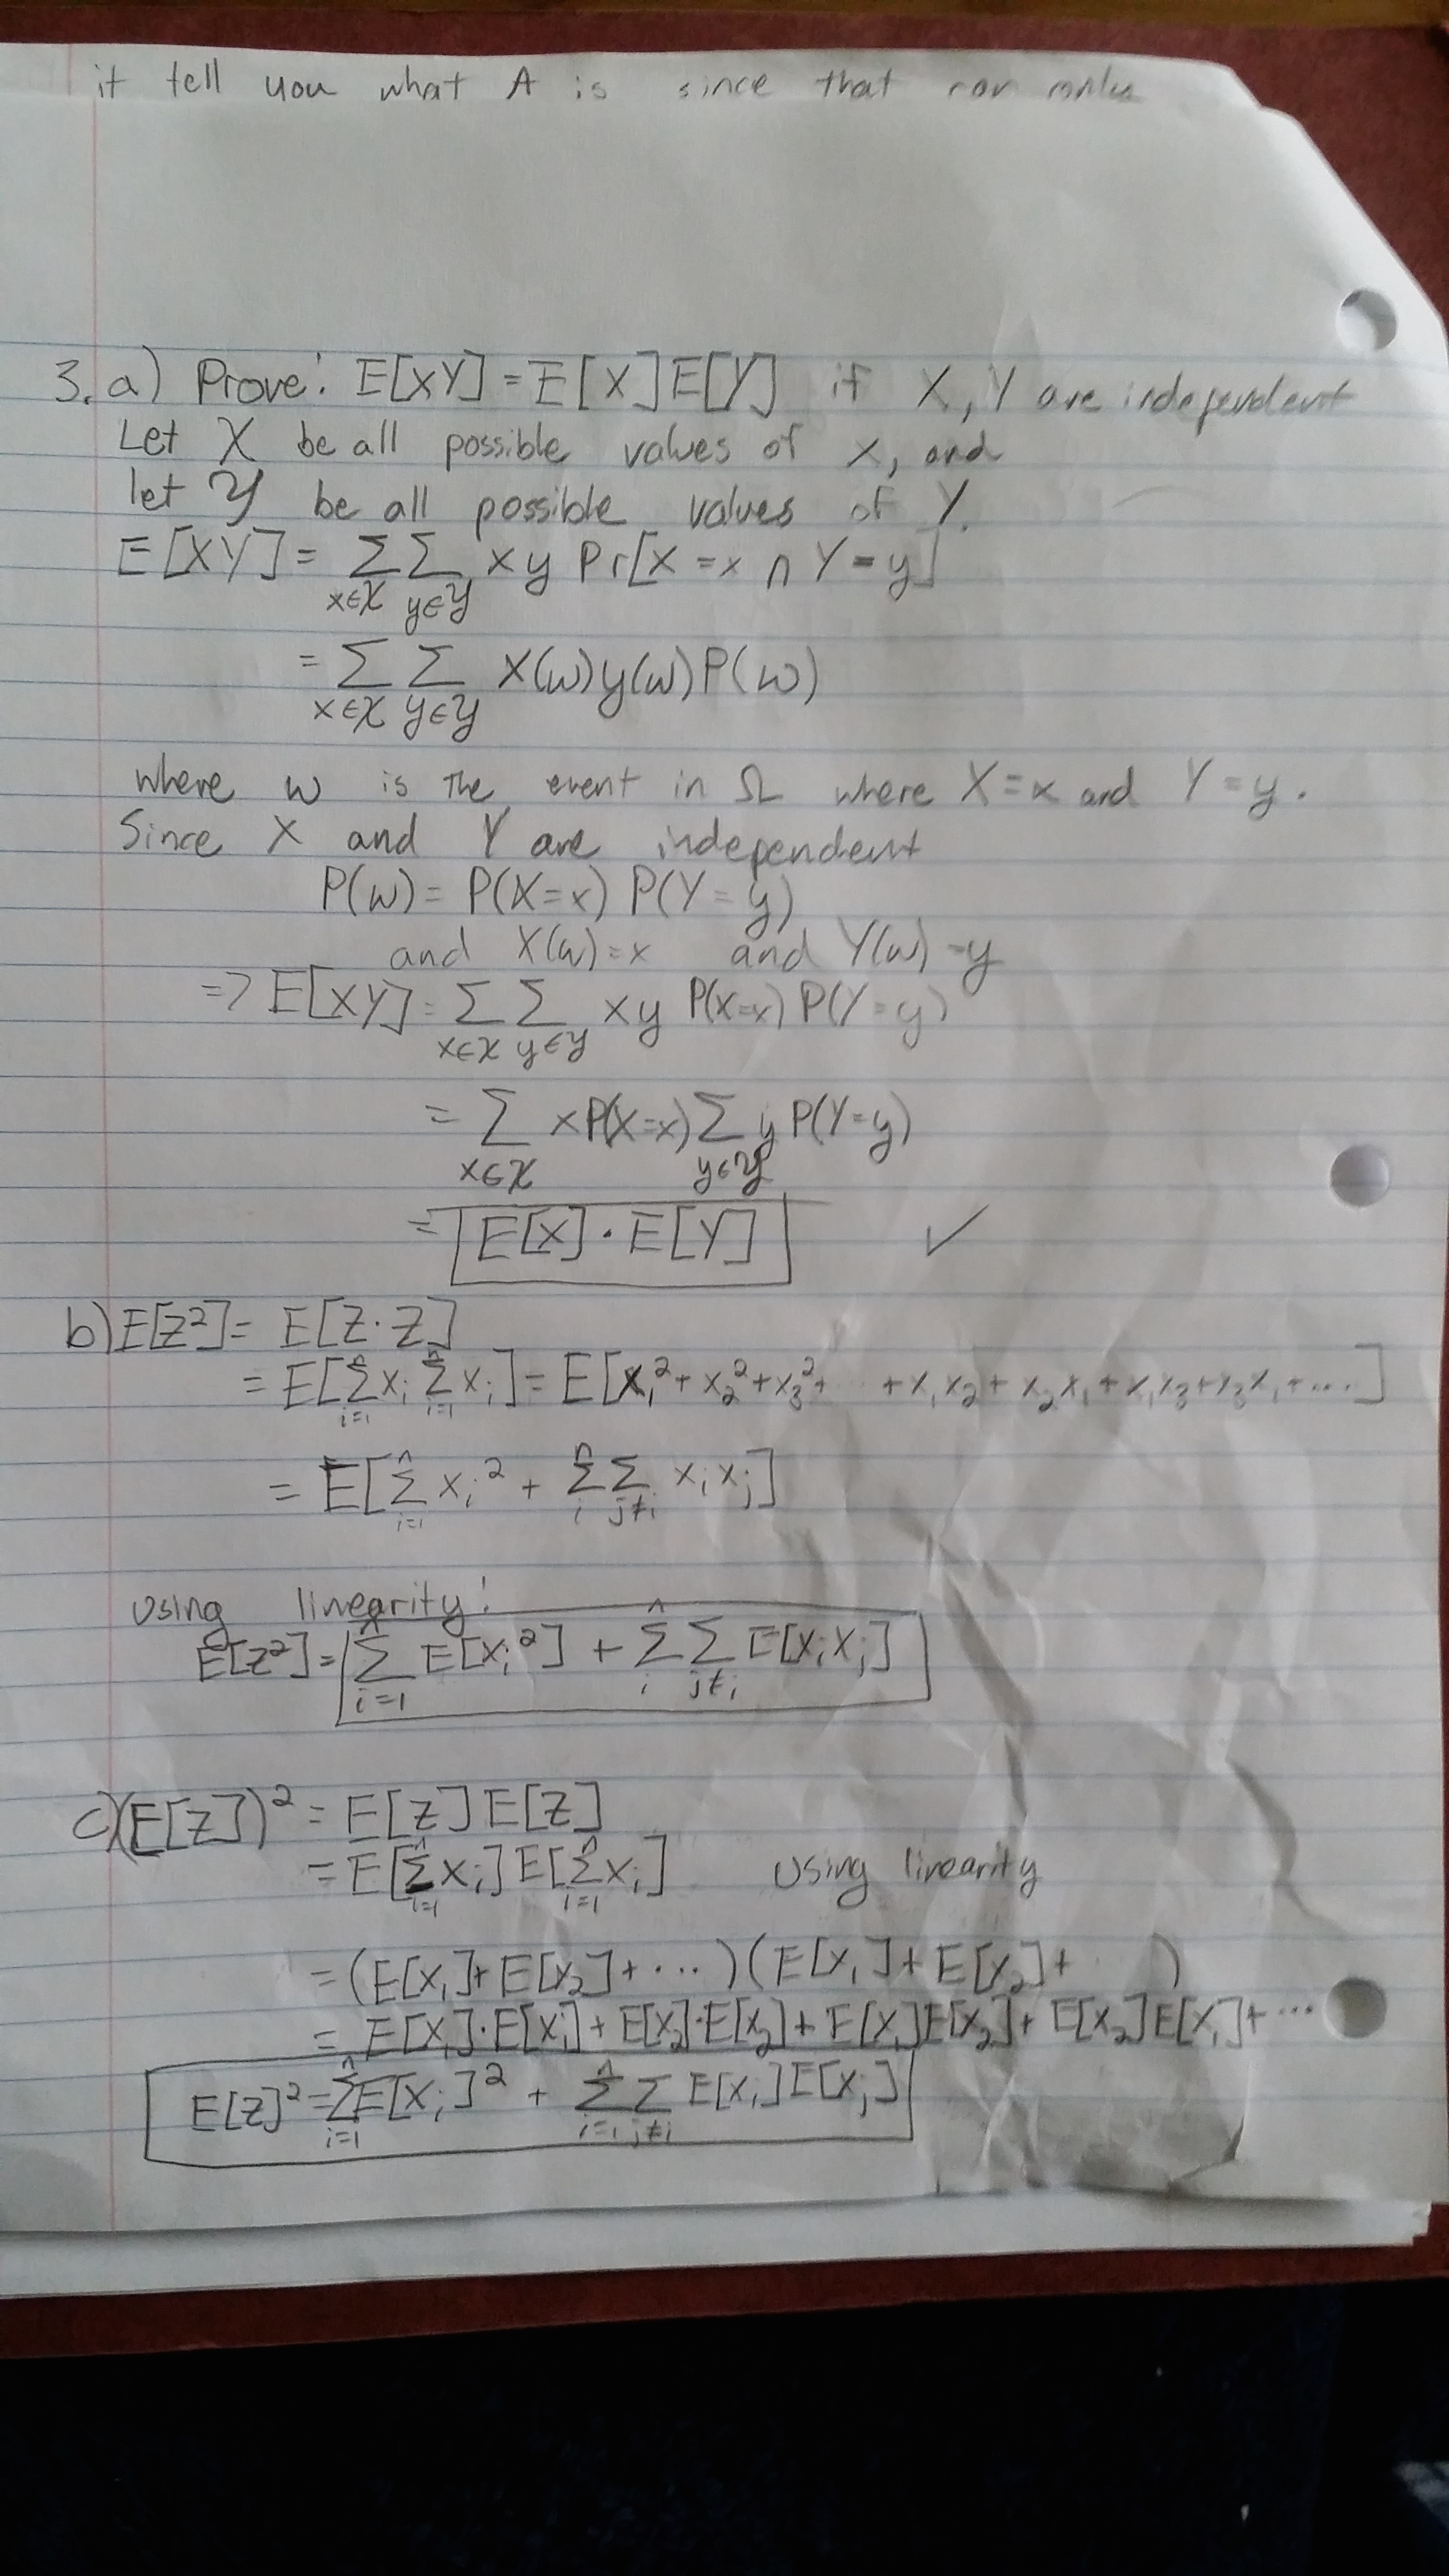 it tell you what A is since that can only
3. a) Prove: E[XY] = E[X]E[Y] if X, Y are independent
Let 𝒳 be all possible values of X, and
let 𝒴 be all possible values of Y.
E[XY] = Σ_{x∈𝒳} Σ_{y∈𝒴} xy Pr[X=x ∩ Y=y]
= Σ_{x∈𝒳} Σ_{y∈𝒴} X(ω)y(ω)P(ω)
where ω is the event in Ω where X=x and Y=y.
Since X and Y are independent
P(ω) = P(X=x) P(Y=y)
and X(ω)=x and Y(ω)=y
=> E[XY] = Σ_{x∈𝒳} Σ_{y∈𝒴} xy P(X=x) P(Y=y)
= Σ_{x∈𝒳} xP(X=x) Σ_{y∈𝒴} y P(Y=y)
= E[X] · E[Y] ✓
b) E[Z²] = E[Z·Z]
= E[Σ_{i=1}^n X_i Σ_{i=1}^n X_i] = E[X_1² + X_2² + X_3² + ... + X_1X_2 + X_2X_1 + X_1X_3 + X_3X_1 + ...]
= E[Σ_{i=1}^n X_i² + Σ_i^n Σ_{j≠i} X_i X_j]
using linearity:
E[Z²] = Σ_{i=1}^n E[X_i²] + Σ_i^n Σ_{j≠i} E[X_i X_j]
c) (E[Z])² = E[Z] E[Z]
= E[Σ_{i=1}^n X_i] E[Σ_{i=1}^n X_i] using linearity
= (E[X_1] + E[X_2] + ...) (E[X_1] + E[X_2] + )
= E[X_1]·E[X_1] + E[X_2]·E[X_2] + E[X_1]E[X_2] + E[X_2]E[X_1] + ...
E[Z]² = Σ_{i=1}^n E[X_i]² + Σ_{i=1}^n Σ_{j≠i} E[X_i] E[X_j]